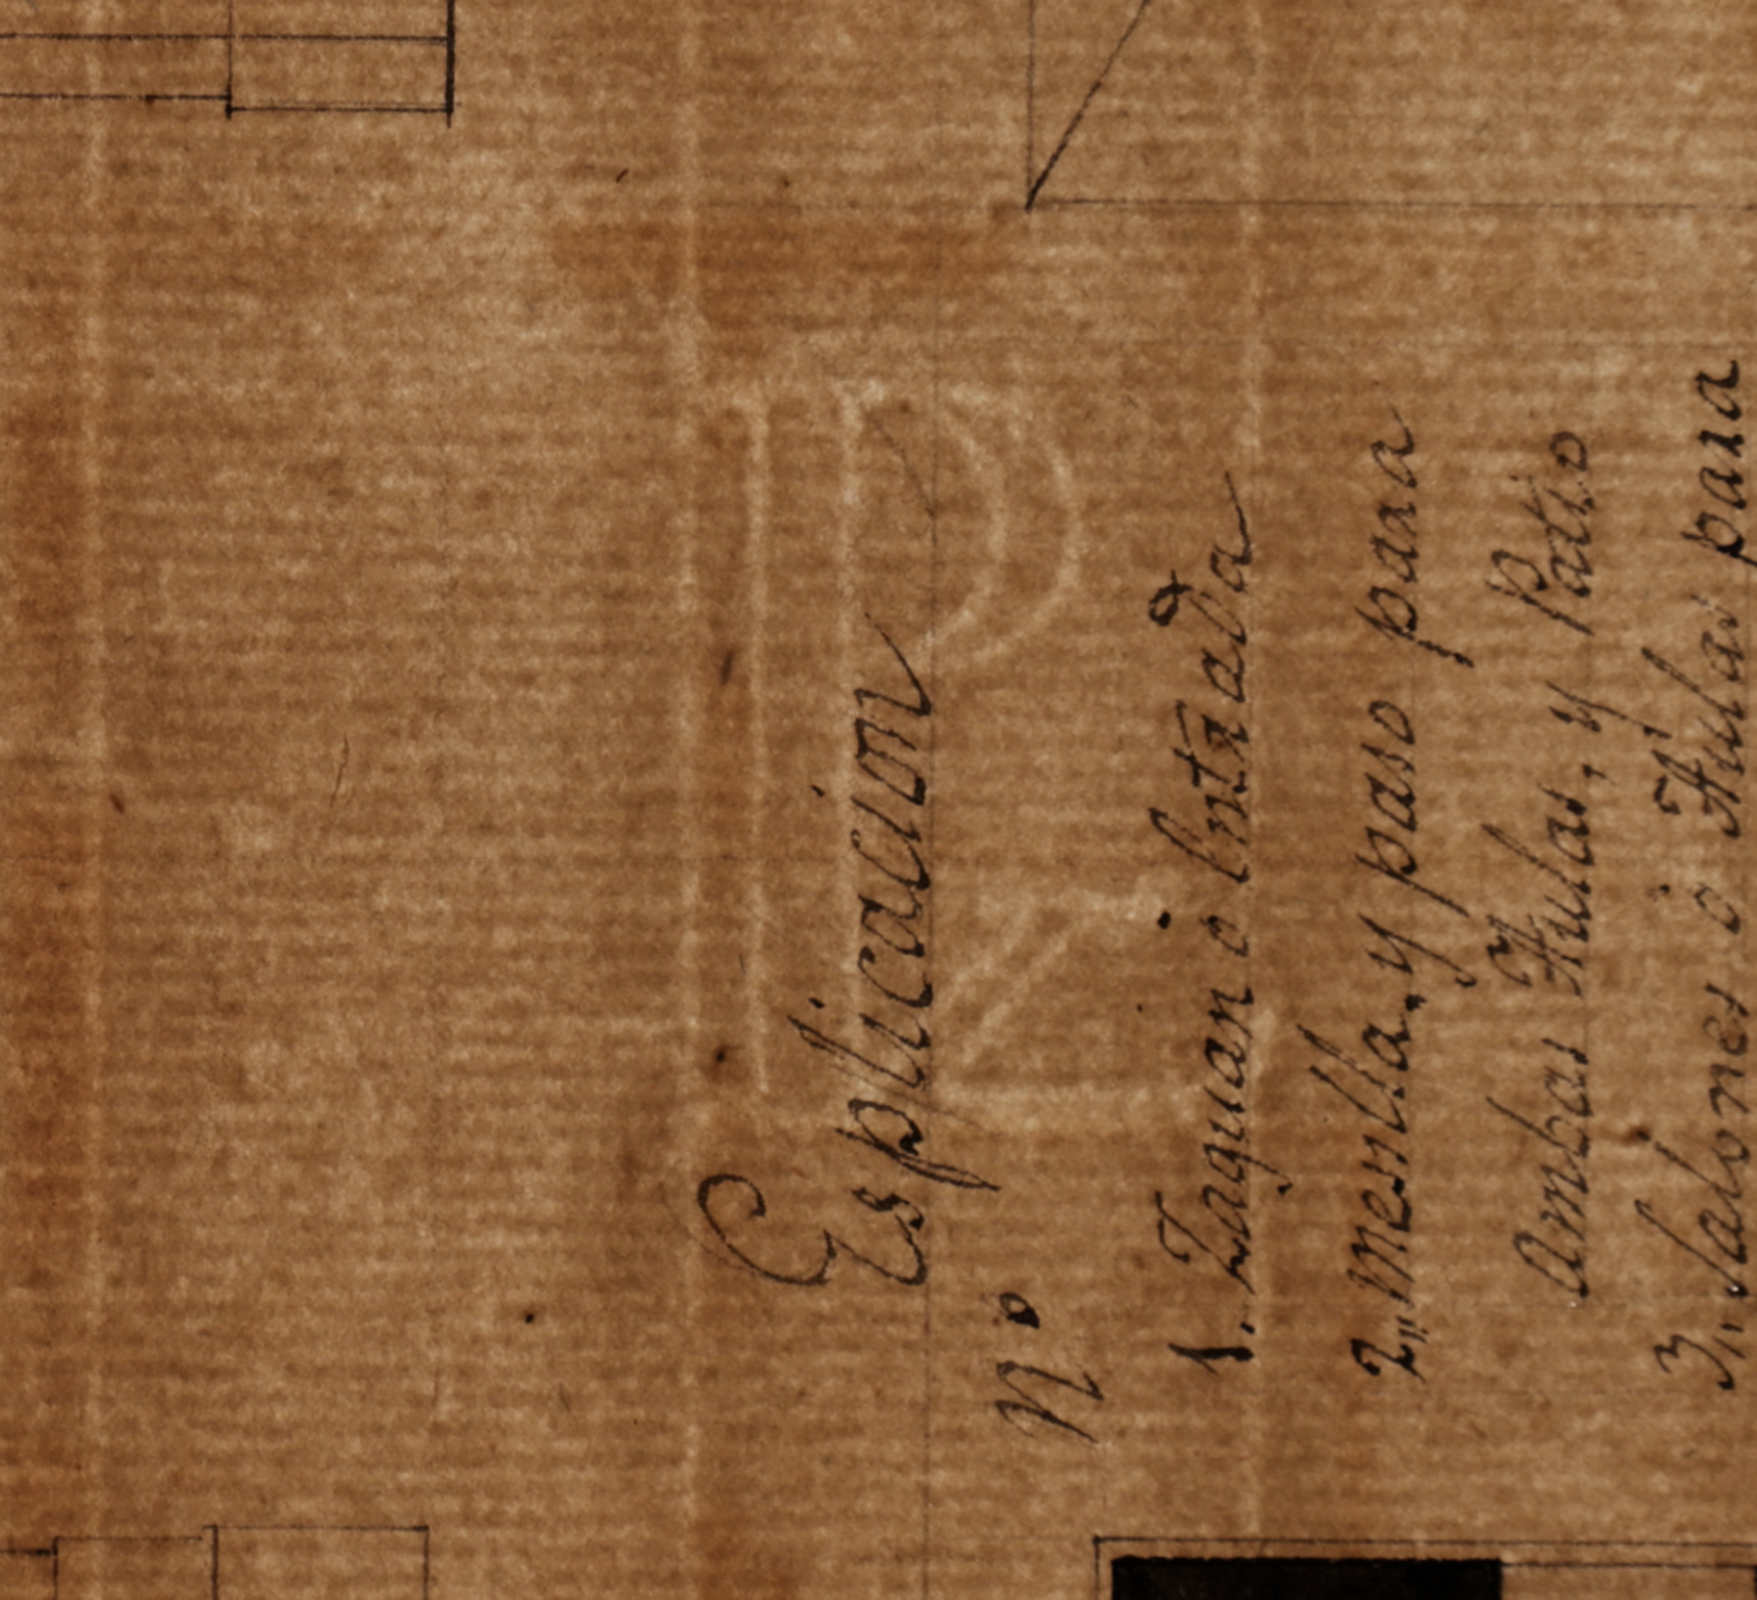 Esplicacion
N.º
1. Zaguan o Entrada
2,, mesilla, y paso para
Ambas Aulas, y Patio
3,, Salones o Aulas para
R